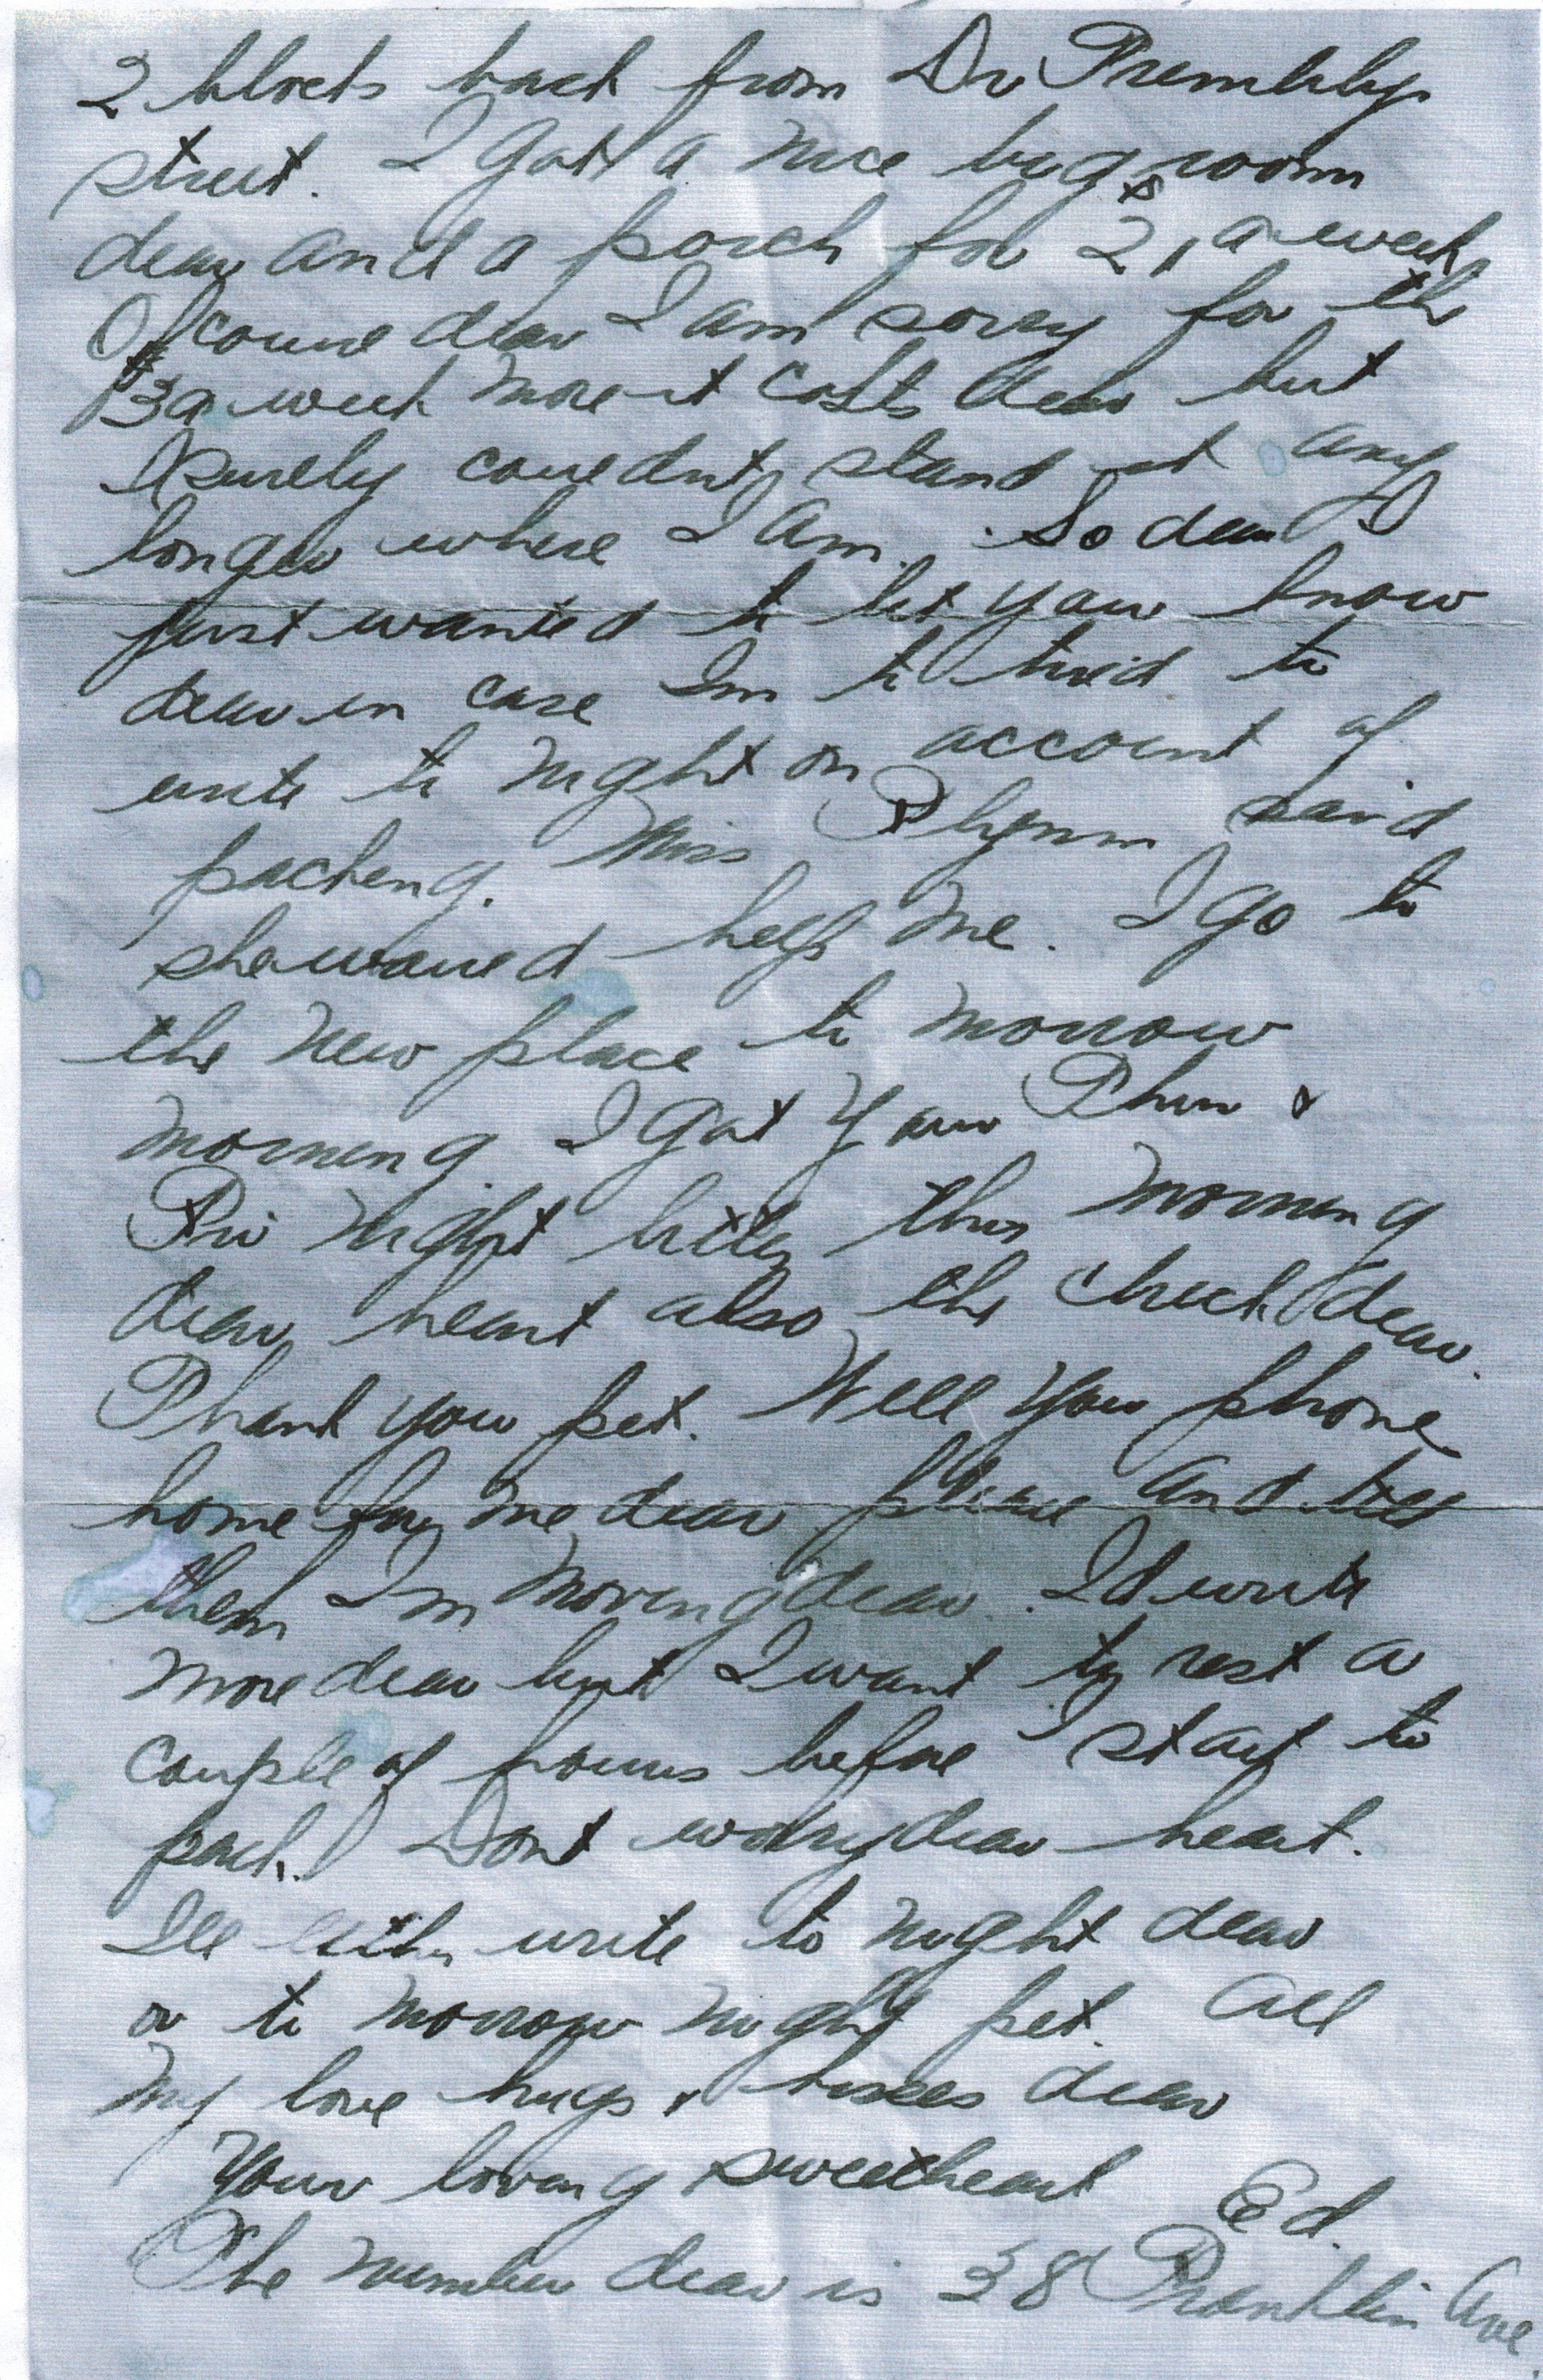 2 blocks back from Dr Trembly
street. I got a nice big room
dear and a porch for $21 a week
Of course dear I am sorry for the
$3 a week more it costs dear but
I surely couldnt stand it any
longer where I am. So dear I
just wanted to let you know
dear in case Im to tired to
write to night on account of
packing. Miss Flynn said
she would help me. I go to
the new place to morrow
morning I got your Thur &
Fri night letter this morning
dear heart also the check dear.
Thank you pet. Will you phone
home for me dear please and tell
them Im moving dear. Id write
more dear but I want to rest a
couple of hours before I start to
pack. Dont worry dear heart.
Ill either write to night dear
or to morrow night pet. All
my love hugs & kisses dear
Your loving sweetheart Ed.
The number dear is 38 Franklin Ave